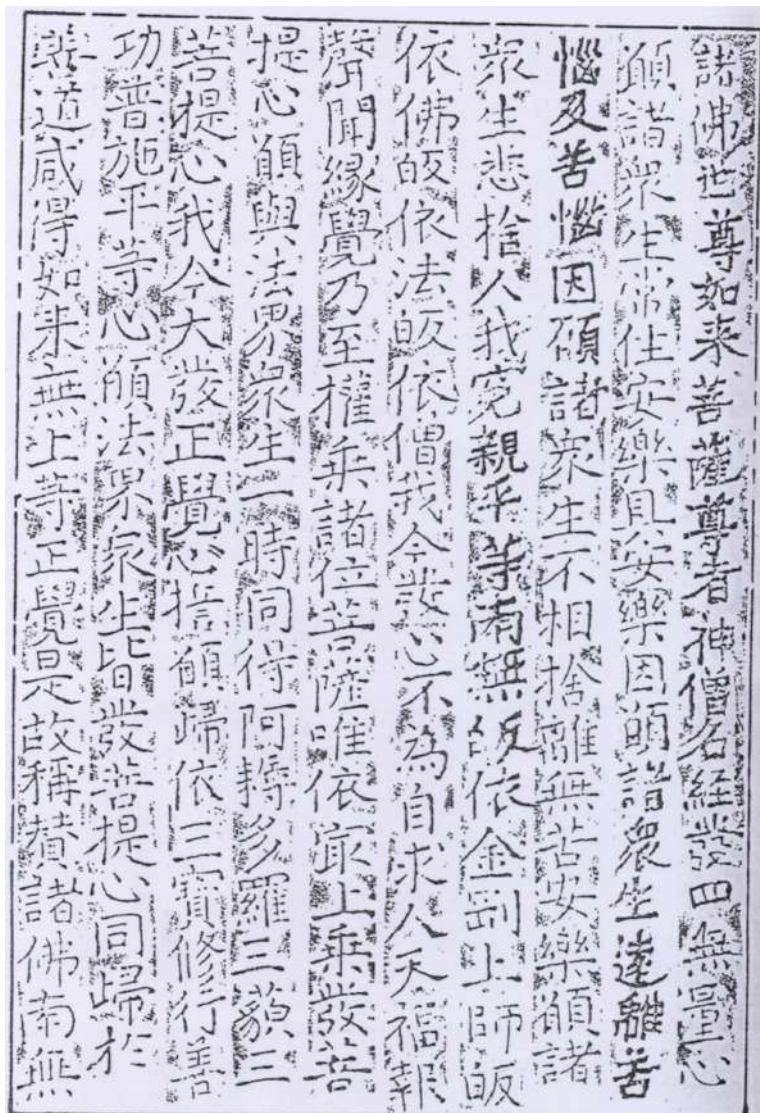 諸佛世尊如来菩薩尊者神僧名経發四無量心
願諸衆生常住安樂具安樂因願諸衆生遠離苦
惱及苦惱因願諸衆生不相捨離無苦安樂願諸
衆生悲捨人我寃親平等南無皈依金剛上師皈
依佛皈依法皈依僧我今發心不為自求人天福報
聲聞緣覺乃至權乗諸位菩薩唯依最上乗發菩
提心願與法界衆生一時同得阿耨多羅三藐三
菩提心我今大發正覺心捨願歸依三寶修行善
功普施平等心願法界衆生皆發菩提心同歸於
道咸得如来無上等正覺是故稱賛諸佛南無